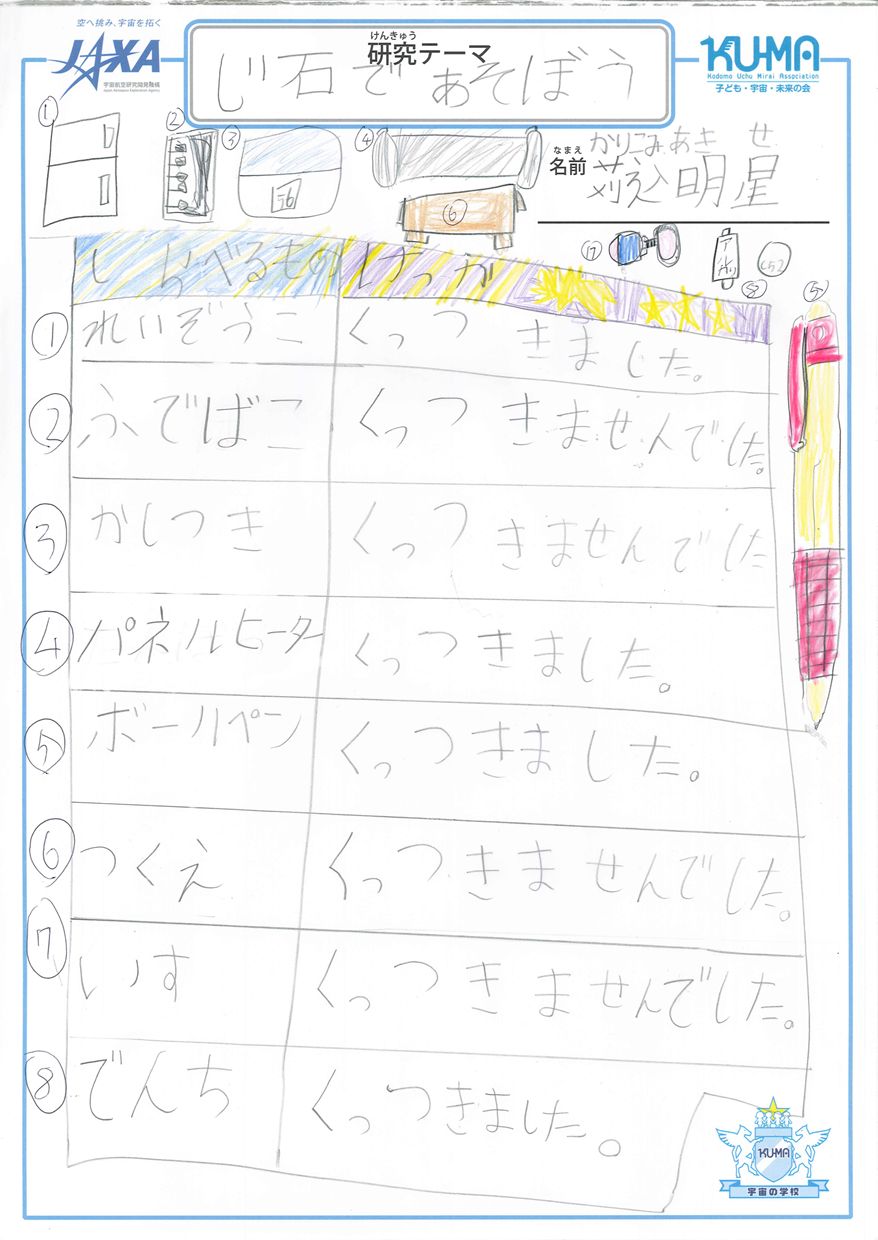 空へ挑み、宇宙を拓く
JAXA
宇宙航空研究開発機構
Japan Aerospace Exploration Agency
けんきゅう
研究テーマ
じ石であそぼう
KU-MA
Kodomo Uchu Mirai Association
子ども・宇宙・未来の会
なまえ
名前
かりこみあきせ
苅込明星
① ② ③ ④ ⑥ ⑦ ⑧ ⑤
56
しらべるもの けっか
① れいぞうこ くっつきました。
② ふでばこ くっつきませんでした。
③ かしつき くっつきませんでした
④ パネルヒーター くっつきました。
⑤ ボールペン くっつきました。
⑥ つくえ くっつきませんでした。
⑦ いす くっつきませんでした。
⑧ でんち くっつきました。
KU-MA
宇宙の学校